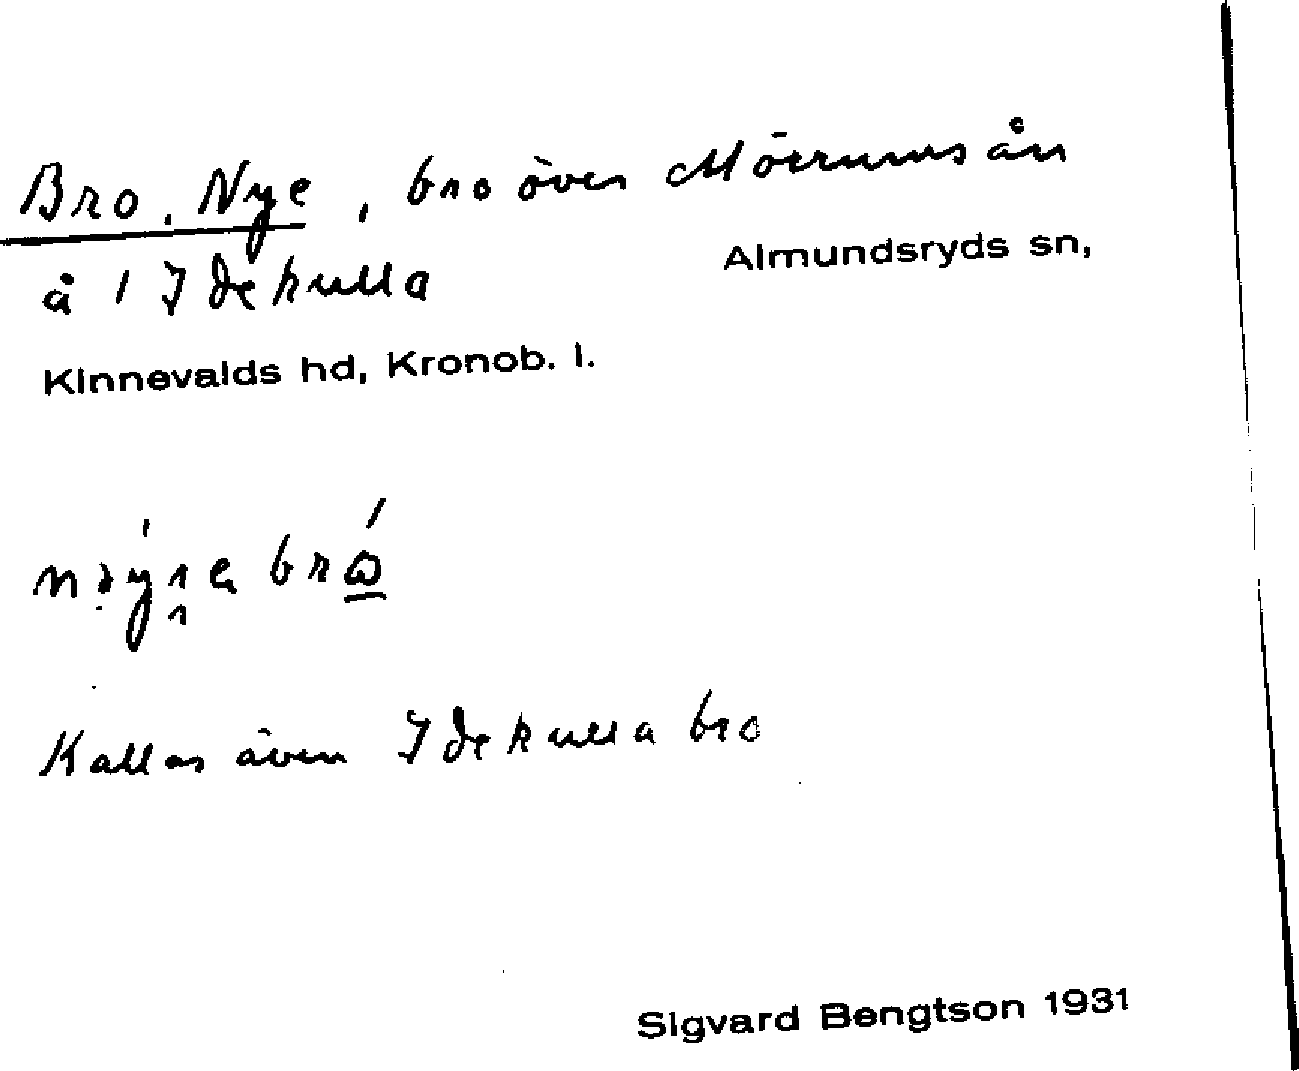 Bro, Nye, bro över Mörrumsån
Almundsryds sn,
å 1 Idekulla
Kinnevalds hd, Kronob. l.
Kallas även Idekulla bro
Sigvard Bengtson 1931